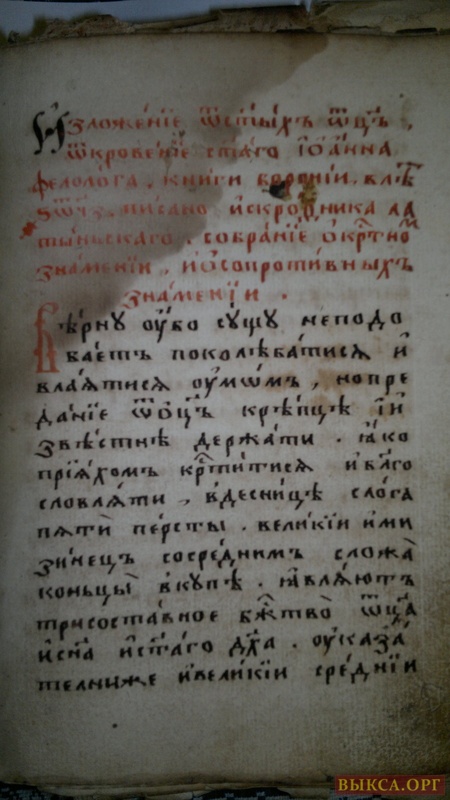 Изложе́нїе ѿст҃ы́хъ ѿц҃ъ,
ѿкрове́нїе ст҃а́го їѡа́нна
феоло́га, кни́ги
писано искро́дника ла
ты́ньскаго. собра́нїе ѡ крⷭ҇тно
зна́менїи, и҆ѡсопроти́вныхъ
зна́менїи.
Вѣ́рну ᲂу҆́бо сꙋ́щꙋ неподо
ба́етъ поколѣба́тисѧ и҆
влаѧ́тисѧ ᲂу҆мѡ́мъ, нопре
да́нїе ѿц҃ъ крѣ́пцѣ и҆и
звѣ́стнѣ держа́ти. ꙗ҆́ко
прїѧ́хомъ крⷭ҇ти́тисѧ и҆бл҃го
словлѧ́ти, вдесни́цѣ слога
пѧти̇̀ пе́рсты. вели́кїи и҆ми
зи́нецъ сосре́днимъ сложа̀
коньцы̀ вкꙋ́пѣ. ꙗ҆влѧ́ютъ
трисоста́вное бж҃тво̀ ѿц҃а
и҆сн҃а и҆ст҃а́го дх҃а. ᲂу҆каза́
телниже и҆вели́кїи сре́днїи
ВЫКСА.ОРГ